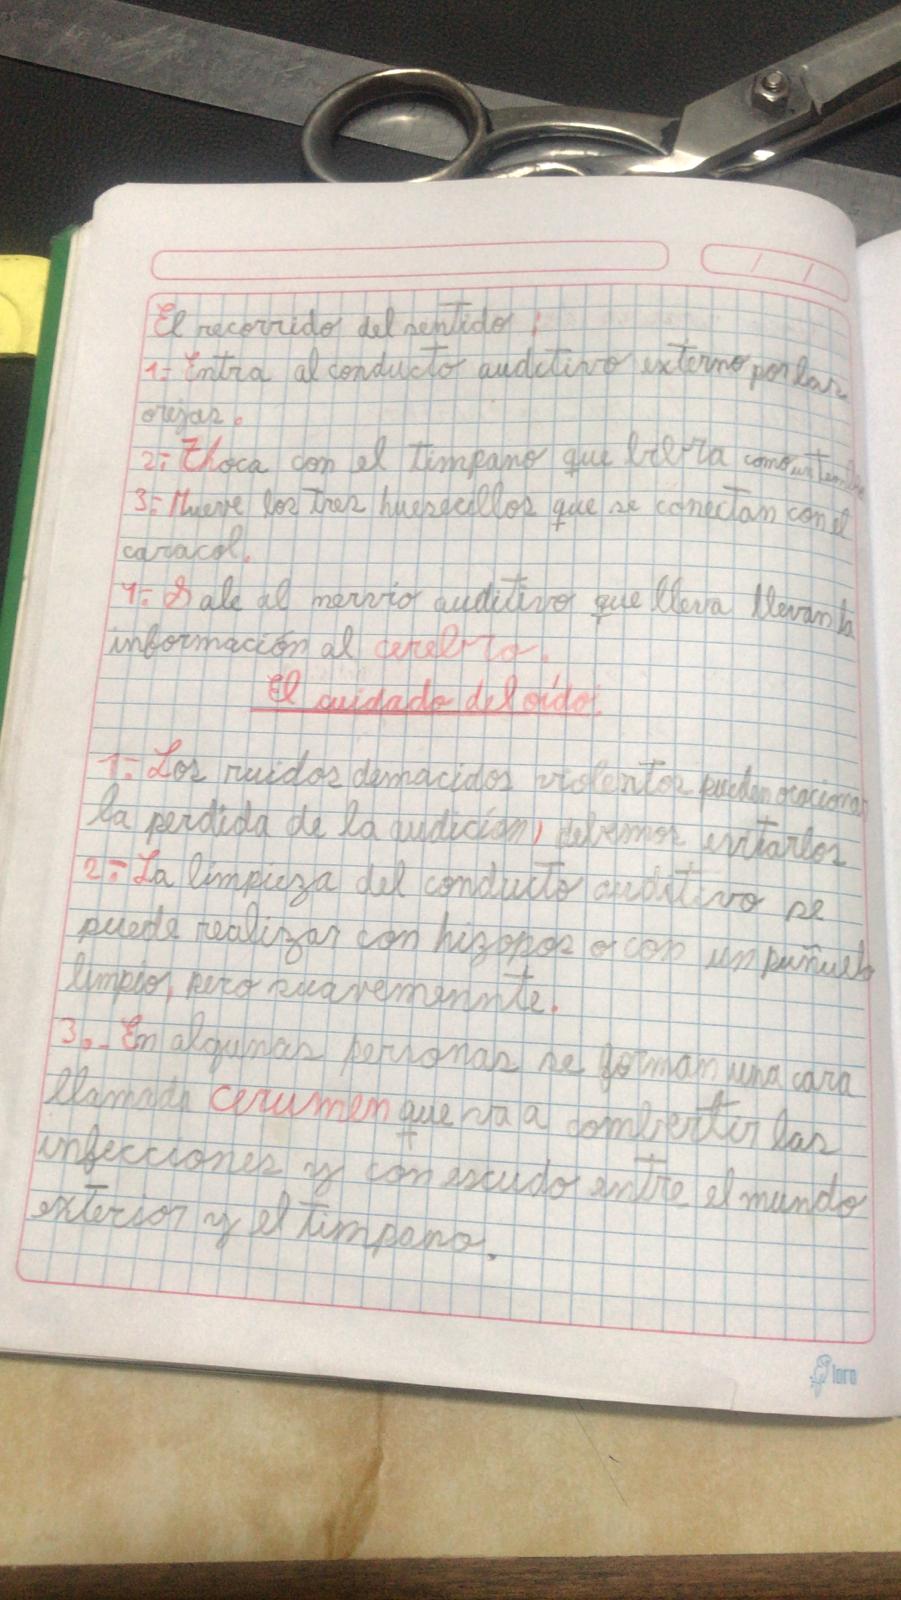 El recorrido del sentido:
1- Entra al conducto auditivo externo por las
orejas.
2- Choca con el timpano que bibra como un
3- Mueve los tres huesecillos que se conectan con el
caracol.
4- Sale al nervio auditivo que lleva llevan la
información al cerebro.
El cuidado del oído.
1- Los ruidos demacidos violentos pueden ocacionar
la perdida de la audición, debemos evitarlos
2- La limpieza del conducto auditivo se
puede realizar con hizopos o con un puñuelo
limpio, pero suavemennte.
3.- En algunas personas se forman una cara
llamada cerumen que va a combertir las
infecciones y con escudo entre el mundo
exterior y el timpano.
loro